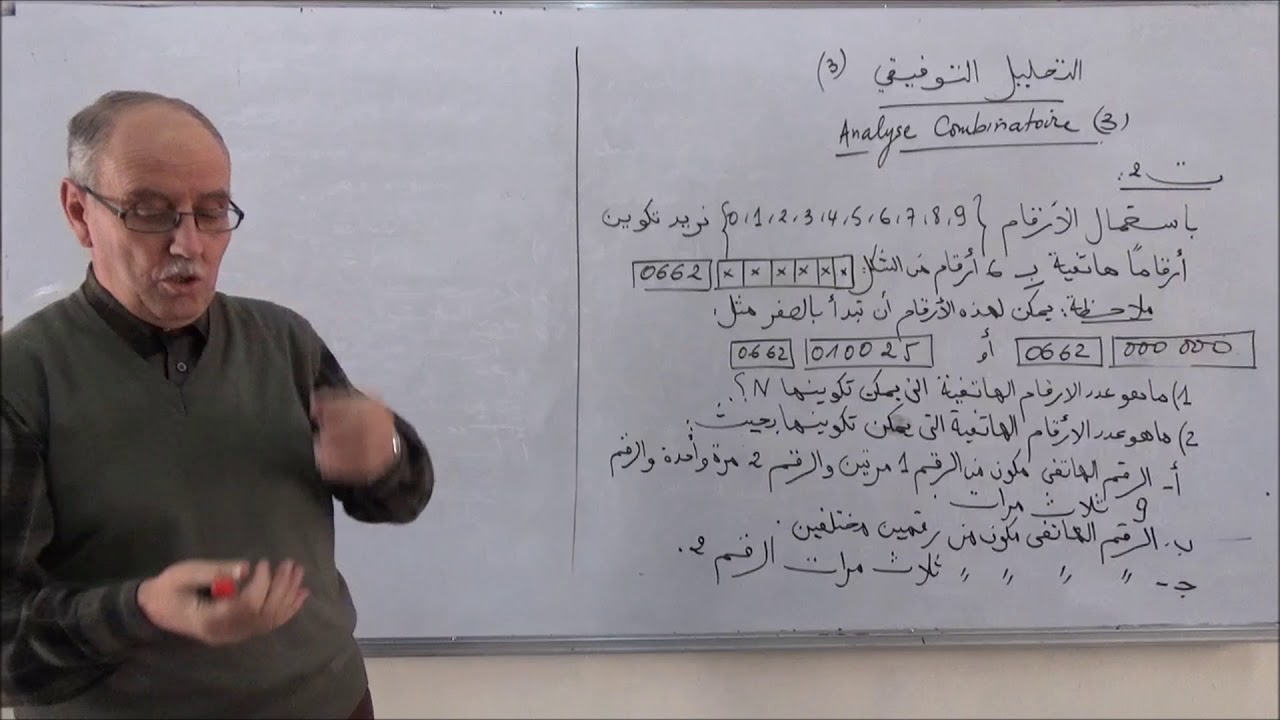 التحليل التوفيقي (3)
Analyse Combinatoire (3)
ت 2:
باستعمال الأرقام {0,1,2,3,4,5,6,7,8,9} نريد تكوين
أرقامًا هاتفية بـ 6 أرقام من الشكل: 0662 ××××××
ملاحظة: يمكن لهذه الأرقام أن تبدأ بالصفر مثل:
0662 000 000 أو 0662 010025
1) ما هو عدد الارقام الهاتفية التي يمكن تكوينها N؟
2) ما هو عدد الأرقام الهاتفية التي يمكن تكوينها بحيث:
أ- الرقم الهاتفي مكون من الرقم 1 مرتين والرقم 2 مرة واحدة والرقم
9 ثلاث مرات
ب- الرقم الهاتفي مكون من رقمين مختلفين.
ج- " " " " ثلاث مرات الرقم 2.